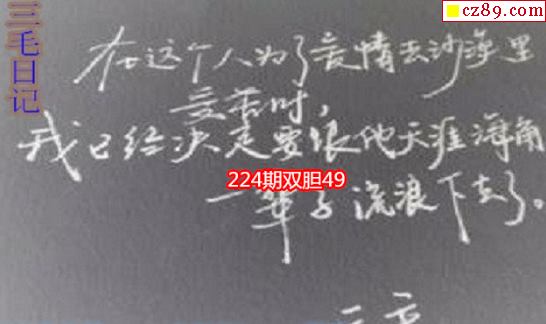 三毛日记
cz89.com
在这个人为了爱情去沙漠里
受苦时，
我已经决定要跟他天涯海角
224期双胆49
一辈子流浪下去了。
三毛